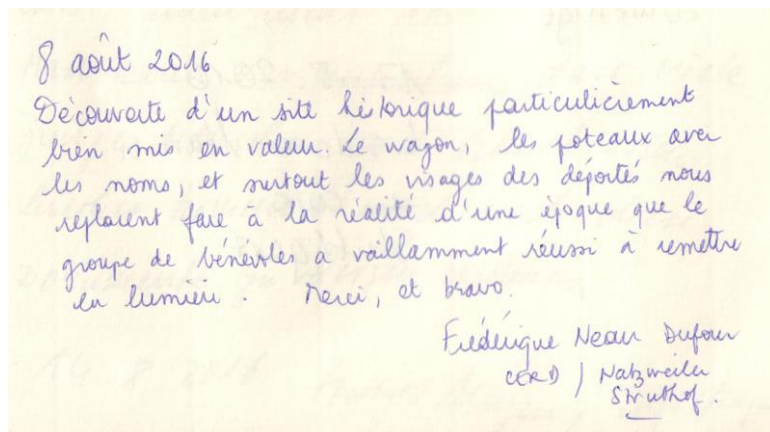 8 août 2016
Découverte d'un site historique particulièrement
bien mis en valeur. Le wagon, les poteaux avec
les noms, et surtout les visages des déportés nous
replacent face à la réalité d'une époque que le
groupe de bénévoles a vaillamment réussi à remettre
en lumière. Merci, et bravo.
Frédérique Neau Dufour
CERD / Natzweiler
Struthof.